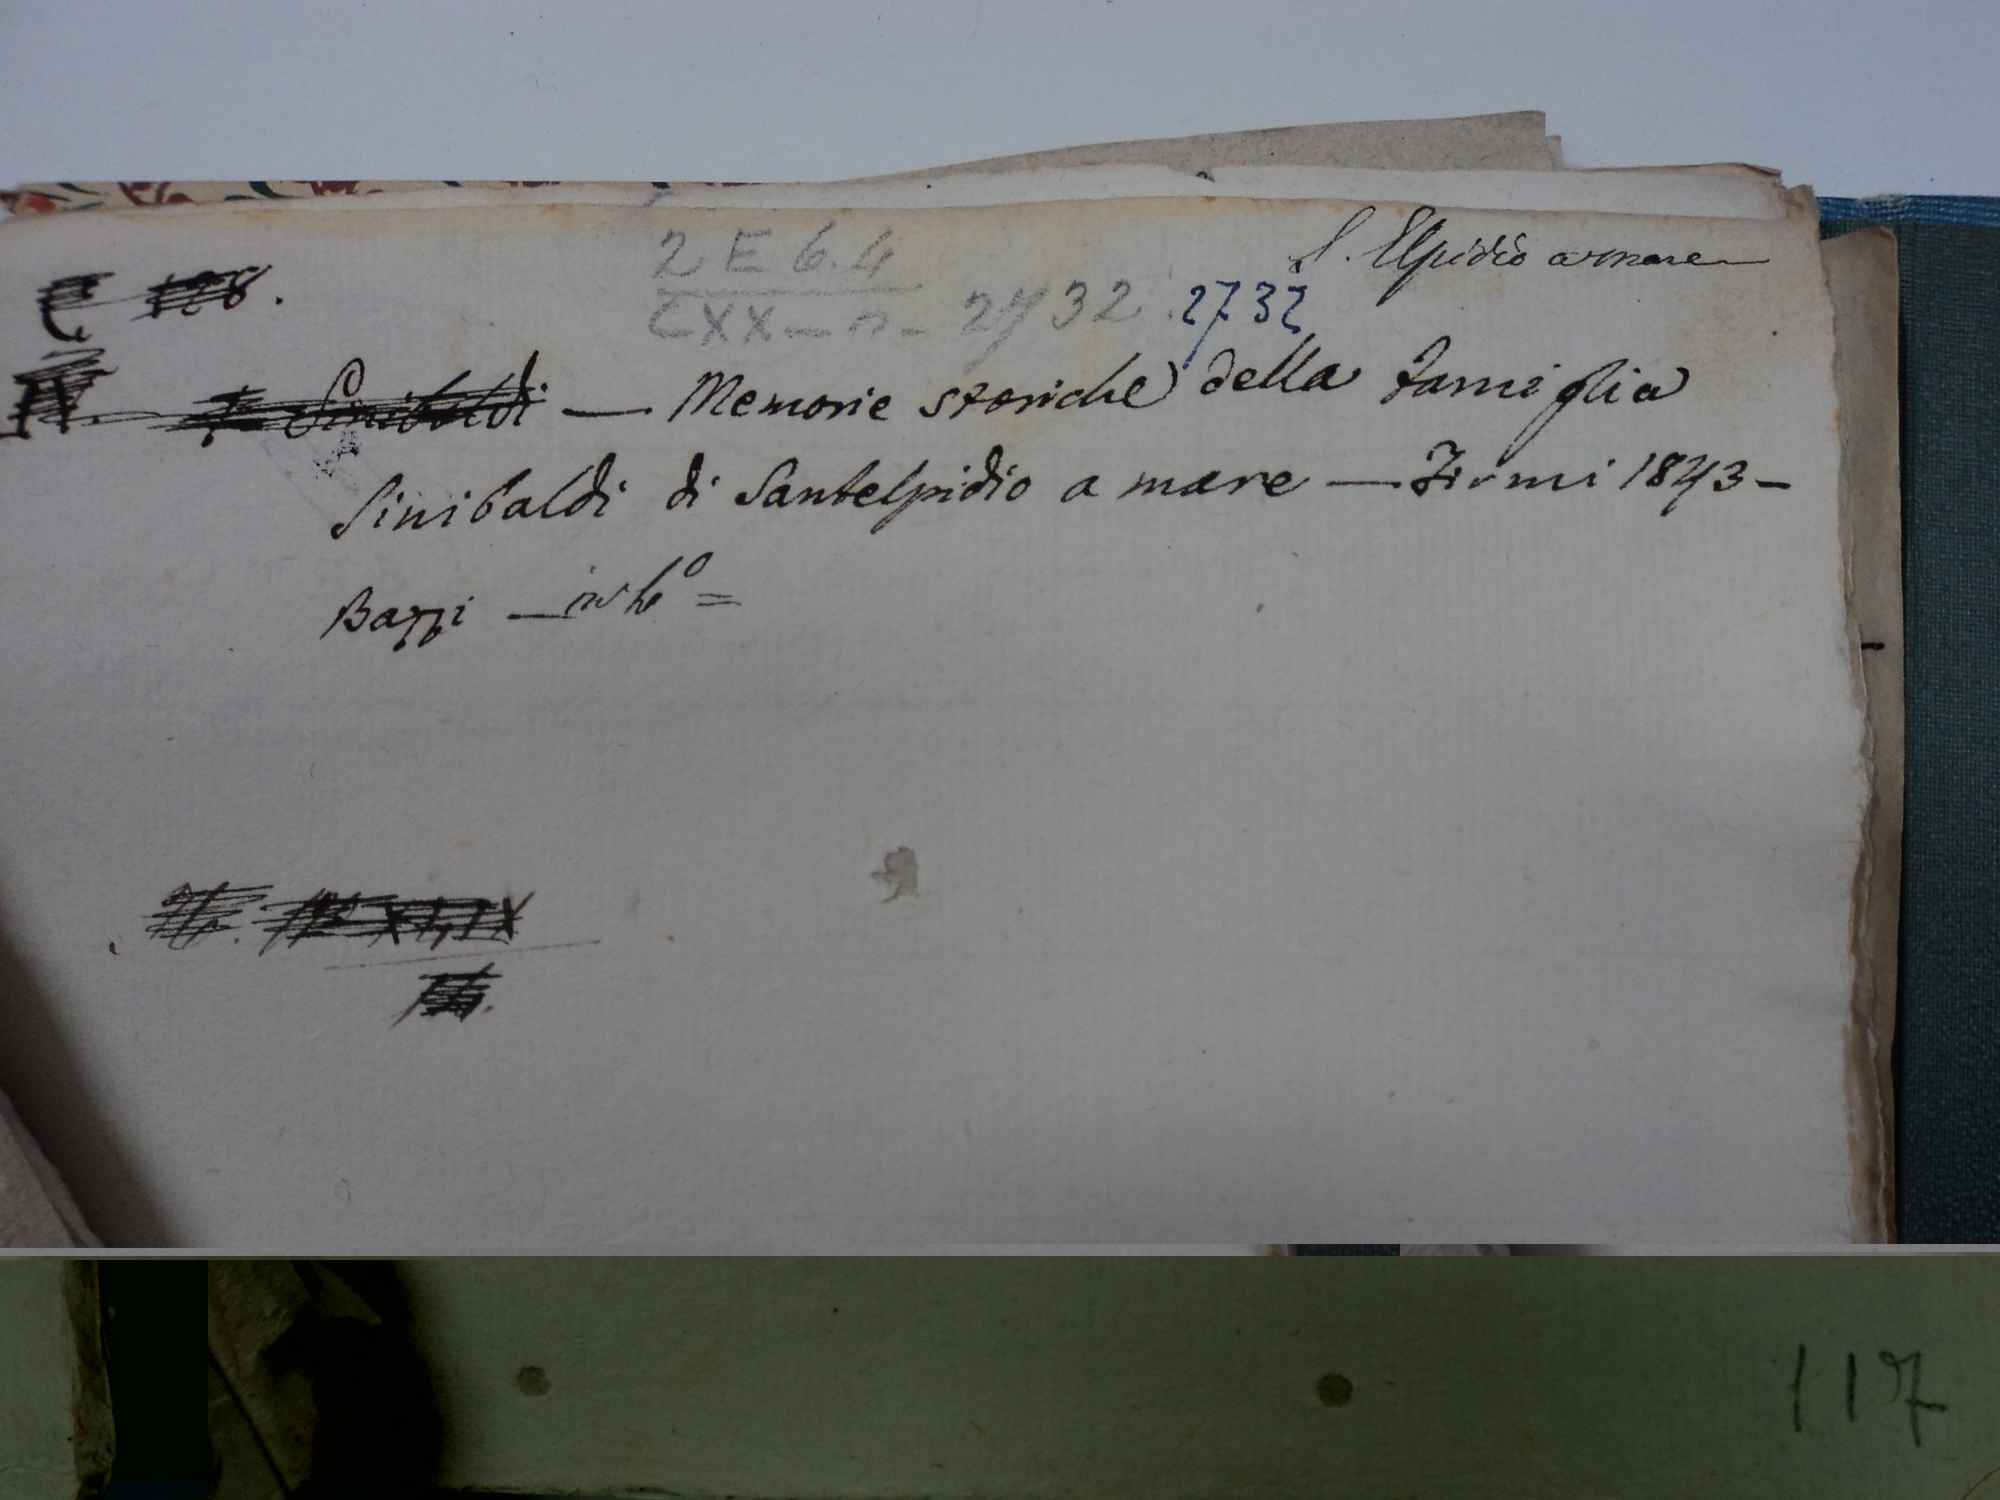 S. Elpidio a mare
2 E 6.4
CXX - n - 2732 2732
C 128.
Sinibaldi — Memorie storiche della famiglia
Sinibaldi di Santelpidio a mare — Firmi 1843 -
Bazzi — in 4° =
XLIX
117